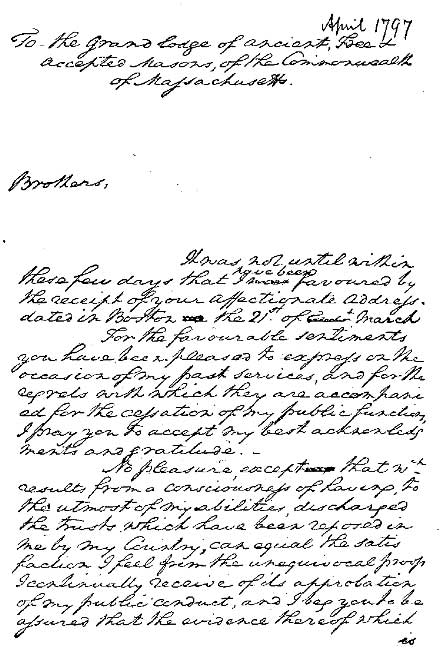 April 1797
To the Grand Lodge of ancient, Free &
accepted Masons, of the Commonwealth
of Massachusetts.
Brothers,
It was not until within
these few days that I have been favoured by
the receipt of your affectionate Address
dated in Boston the 21st of March
For the favourable sentiments
you have been pleased to express on the
occasion of my past services, and for the
regrets with which they are accompani
ed for the cessation of my public functions,
I pray you to accept my best acknowledg
ments and gratitude. –
No pleasure except that wch
results from a consciousness of having, to
the utmost of my abilities, discharged
the trusts which have been reposed in
me by my Country, can equal the satis
faction I feel from the unequivocal proofs
I continually receive of its approbation
of my public conduct, and I beg you to be
assured that the evidence thereof which
is